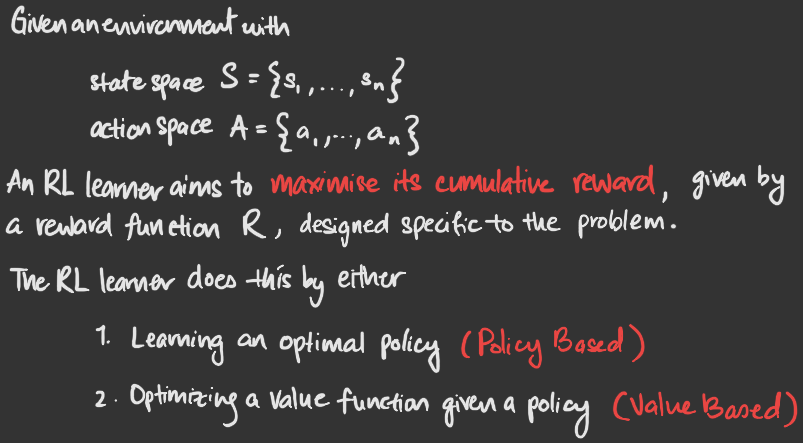 Given an environment with
state space S = {s₁, ..., sₙ}
action space A = {a₁, ..., aₙ}
An RL learner aims to maximise its cumulative reward, given by
a reward function R, designed specific to the problem.
The RL learner does this by either
1. Learning an optimal policy (Policy Based)
2. Optimizing a value function given a policy (Value Based)